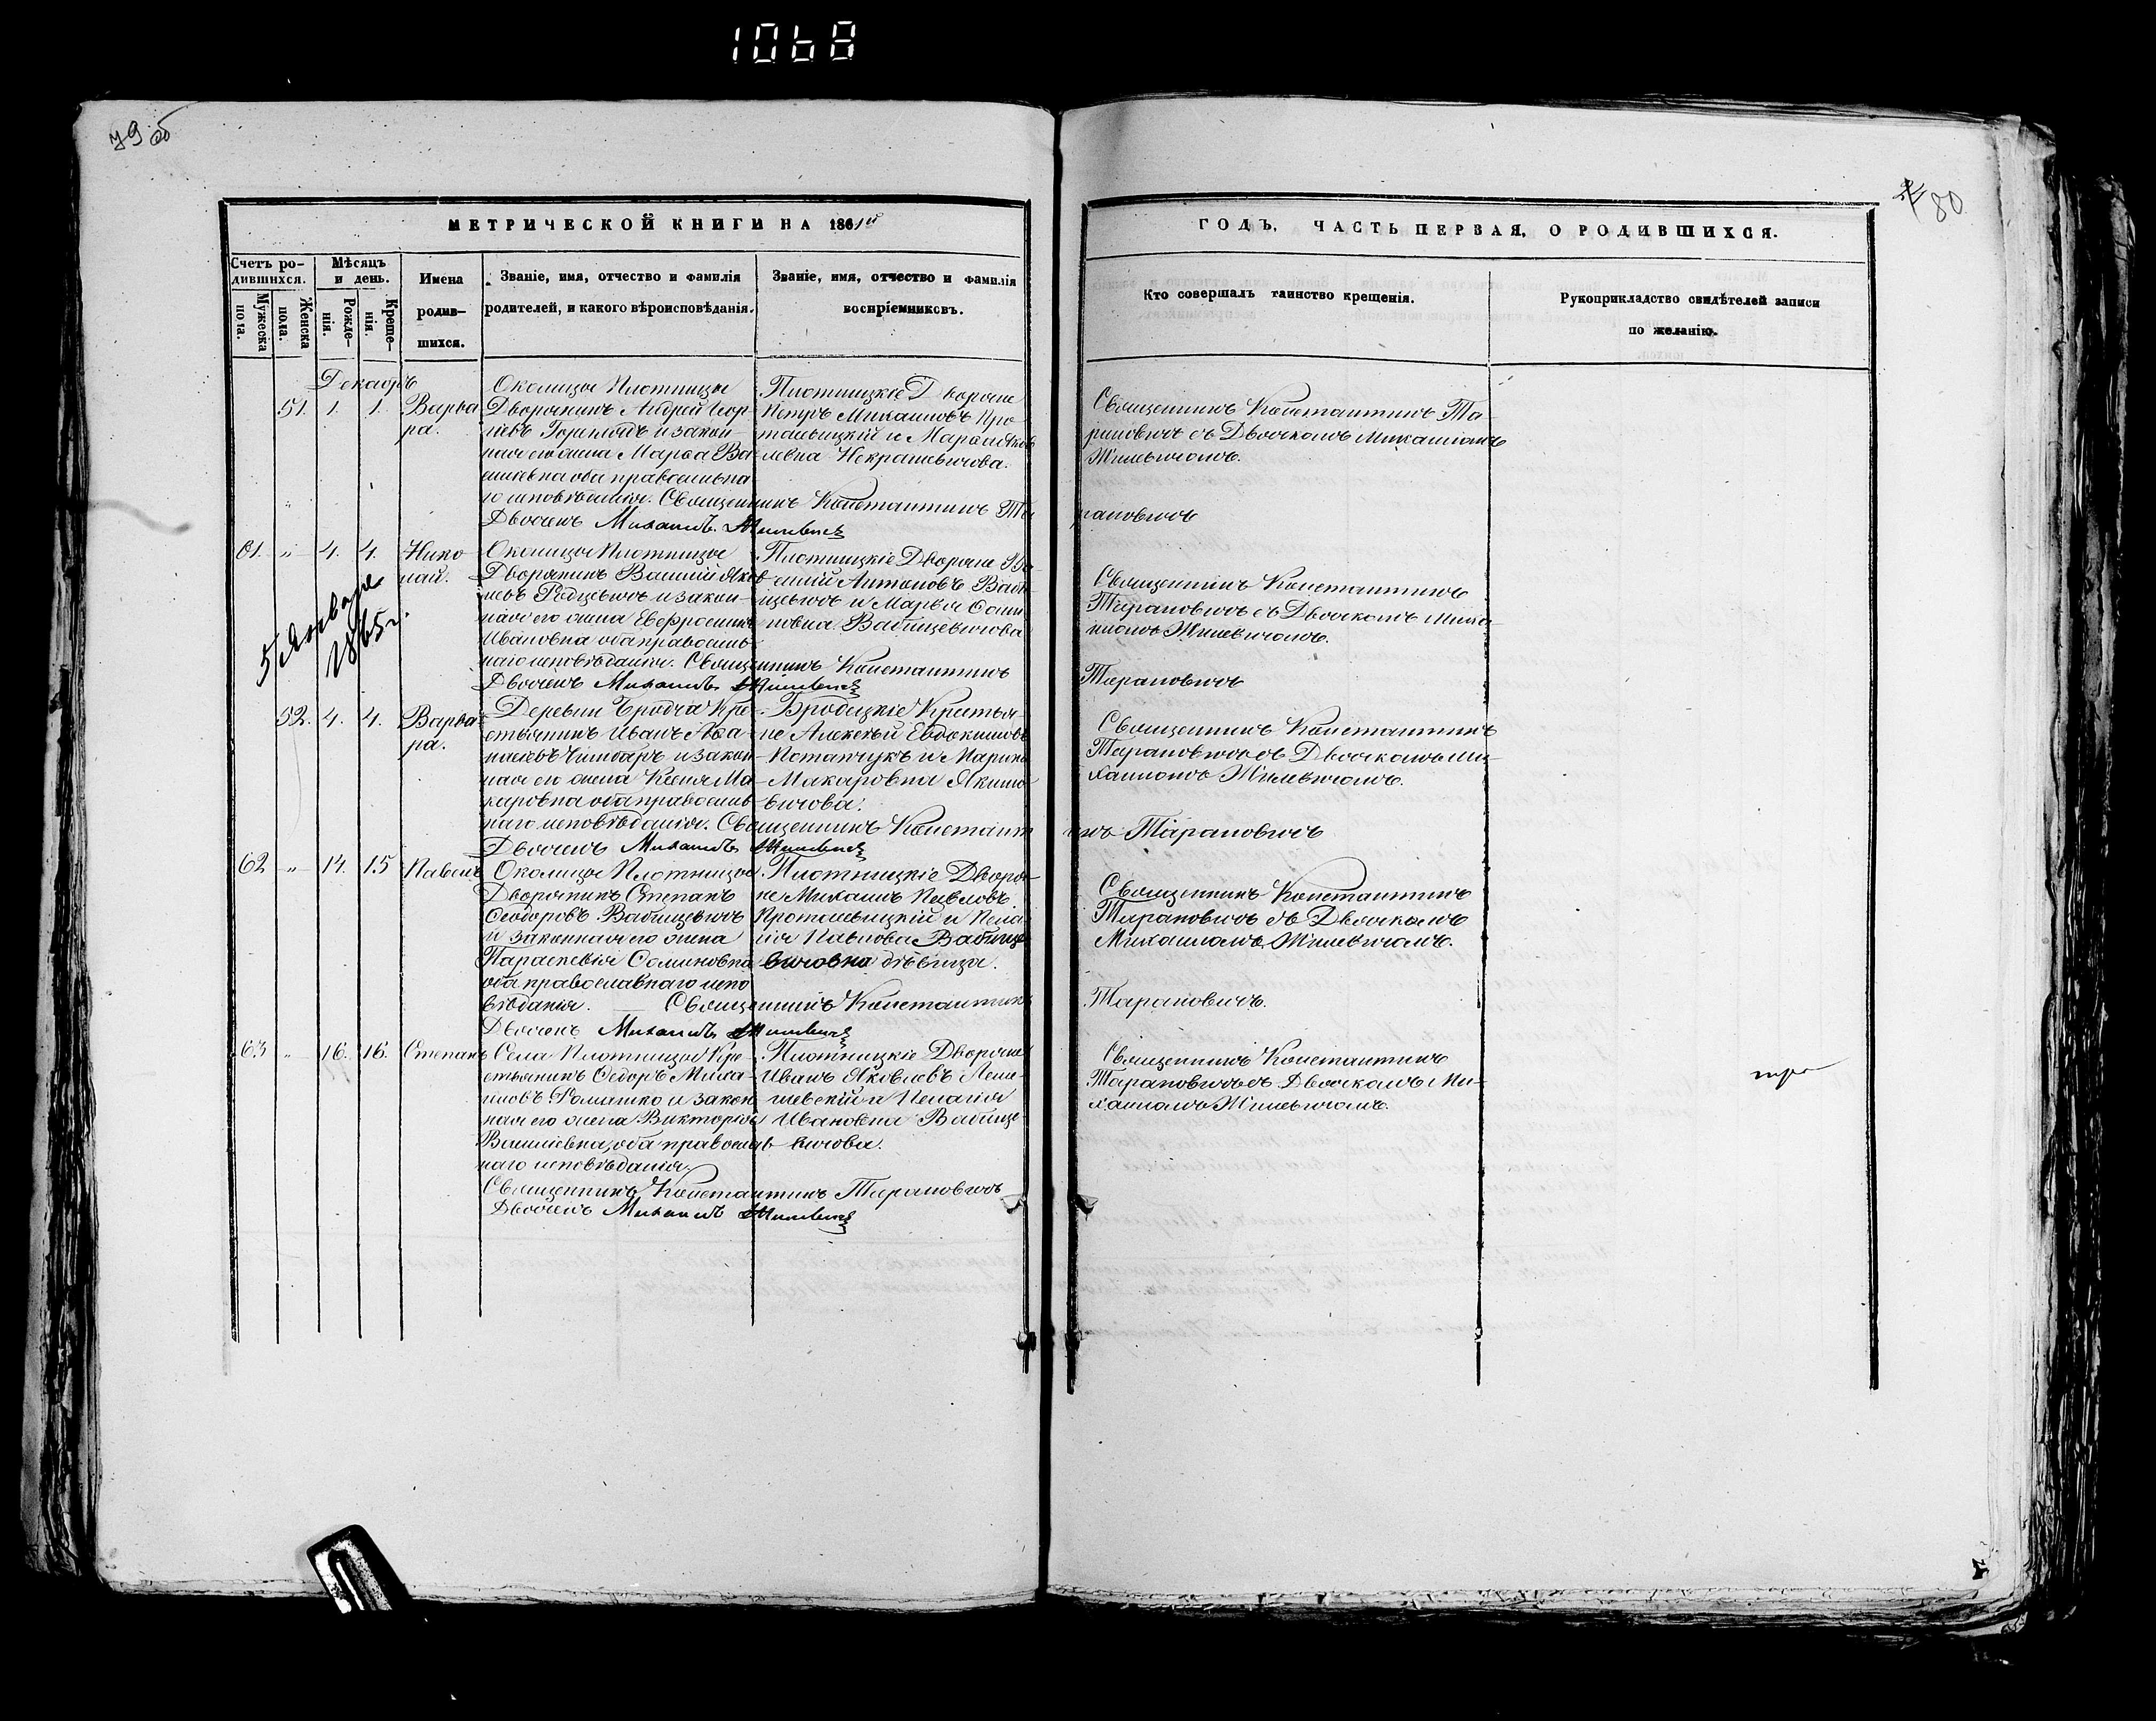 1068
79 об
80
МЕТРИЧЕСКОЙ КНИГИ НА 1861й
ГОДЪ, ЧАСТЬ ПЕРВАЯ, О РОДИВШИХСЯ.
Счетъ ро-
дившихся.
Мужеска
пола.
Женска
пола.
Мѣсяцъ
и день.
Рожде-
нія.
Креще-
нія.
Имена
родив-
шихся.
Званіе, имя, отчество и фамилія
родителей, и какого вѣроисповѣданія.
Званіе, имя, отчество и фамилія
воспріемниковъ.
Кто совершалъ таинство крещенія.
Рукоприкладство свидѣтелей записи
по желанію.
Декабрь
51. 1. 1. Варва
ра.
Околицы Плотницы
Дворянинъ Андрей Геор-
и закон-
ная его жена Марѳа Ва-
силевна оба православна
го исповѣданія. Священникъ Константинъ Та
рановичъ
Дьячекъ Михаилъ Жилевичъ
Плотницкіе Дворяне
Петръ Михаиловъ Про-
ташьицкій и Марѳа Яков
левна Некрашевичова.
Священникъ Константинъ Та-
рановичъ съ Дьячкомъ Михаиломъ
Жилевичомъ.
61. „ 4. 4. Нико
лай.
5 Января
1865 г.
Околицы Плотницы
Дворянинъ Василій Яков
левъ и закон-
ная его жена Евфросинія
Ивановна оба православ-
наго исповѣданія. Священникъ Константинъ
Тарановичъ
Дьячекъ Михаилъ Жилевичъ
Плотницкіе Дворяне Ва-
силій Антоновъ Баби-
щевичъ и Марья Оси-
повна Бабищевичова
Священникъ Константинъ
Тарановичъ съ Дьячкомъ Миха-
иломъ Жилевичомъ.
52. 4. 4. Варва
ра.
Деревни Бродча Кре-
стьянинъ Иванъ Аѳа-
насьевъ и закон-
ная его жена Ксенія Ма-
каровна оба православ-
наго исповѣданія. Священникъ Константи
нъ Тарановичъ
Дьячекъ Михаилъ Жилевичъ
Бродецкіе Крестья-
не Алексѣй Евдокимовъ
Потапчукъ и Марина
Макаровна Якимо-
вичова.
Священникъ Константинъ
Тарановичъ съ Дьячкомъ Ми-
хаиломъ Жилевичомъ.
62 „ 14. 15 Павелъ
Околицы Плотницы
Дворянинъ Степанъ
Ѳеодоровъ Бабищевичъ
и законная его жена
Параскевія Соминовна
оба православнаго испо
вѣданія. Священникъ Константинъ
Тарановичъ.
Дьячекъ Михаилъ Жилевичъ
Плотницкіе Дворя-
не Михаилъ Павловъ
Проташьицкій и Пела-
гія Павлова Бабище
вичовна дѣвица.
Священникъ Константинъ
Тарановичъ съ Дьячкомъ
Михаиломъ Жилевичомъ.
63 „ 16. 16. Степанъ
Села Плотницы Кре-
стьянинъ Ѳедоръ Миха-
иловъ Романко и закон
ная его жена Викторія
Василіевна, оба православ-
наго исповѣданія.
Священникъ Константинъ Тарановичъ
Дьячекъ Михаилъ Жилевичъ
Плотницкіе Дворяне
Иванъ Яковлевъ
и Пелагія
Ивановна Бабище-
вичова.
Священникъ Константинъ
Тарановичъ съ Дьячкомъ Ми-
хаиломъ Жилевичомъ.